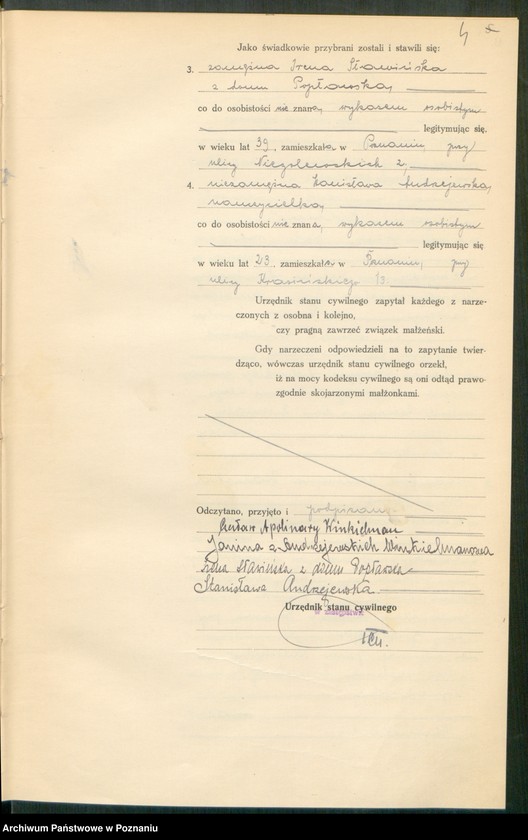 4
Jako świadkowie przybrani zostali i stawili się:
3. zamężna Irena Stawińska
z domu Popławska,
co do osobistości nie znana, wykazem osobistym
legitymując się,
w wieku lat 39, zamieszkała w Poznaniu, przy
ulicy Niegolewskich 2,
4. niezamężna Stanisława Andrzejewska,
nauczycielka,
co do osobistości nie znana, wykazem osobistym
legitymując się
w wieku lat 23, zamieszkała w Poznaniu, przy
ulicy Krasińskiego 13.
Urzędnik stanu cywilnego zapytał każdego z narze-
czonych z osobna i kolejno,
czy pragną zawrzeć związek małżeński.
Gdy narzeczeni odpowiedzieli na to zapytanie twier-
dząco, wówczas urzędnik stanu cywilnego orzekł,
iż na mocy kodeksu cywilnego są oni odtąd prawo-
zgodnie skojarzonymi małżonkami.
Odczytano, przyjęto i podpisano
Apolinary Winkielman
Janina z Andrzejewskich Winkielmanowa
Irena Stawińska z domu Popławska
Stanisława Andrzejewska
Urzędnik stanu cywilnego
w zastępstwie
Archiwum Państwowe w Poznaniu